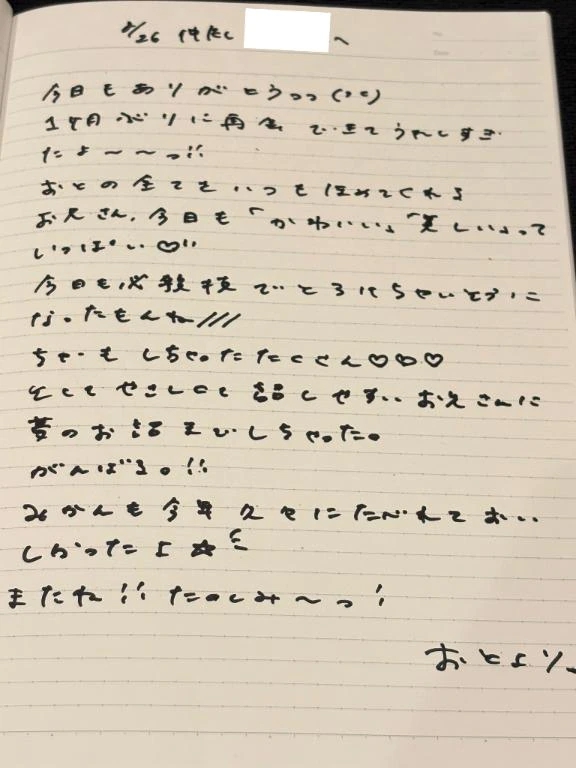 2/26 仲だし へ
今日もありがとうっっ(>_<)
1ヶ月ぶりに再会できてうれしすぎ
たよ〜〜っ!!
おとの全てをいつもほめてくれる
お兄さん、今日も「かわいい」「美しい」って
いっぱい♡!!
今日も必殺技でとろけちゃいそうに
なったもんね///
ちゅーもしちゃったたくさん♡♡♡
そしてやさしくて話しやすいお兄さんに
昔のお話までしちゃった。
がんばる。!!
みかんも今年久々にたべれておいい
しかったよ☆ミ
またね!! たのしみ〜っ!
おとより